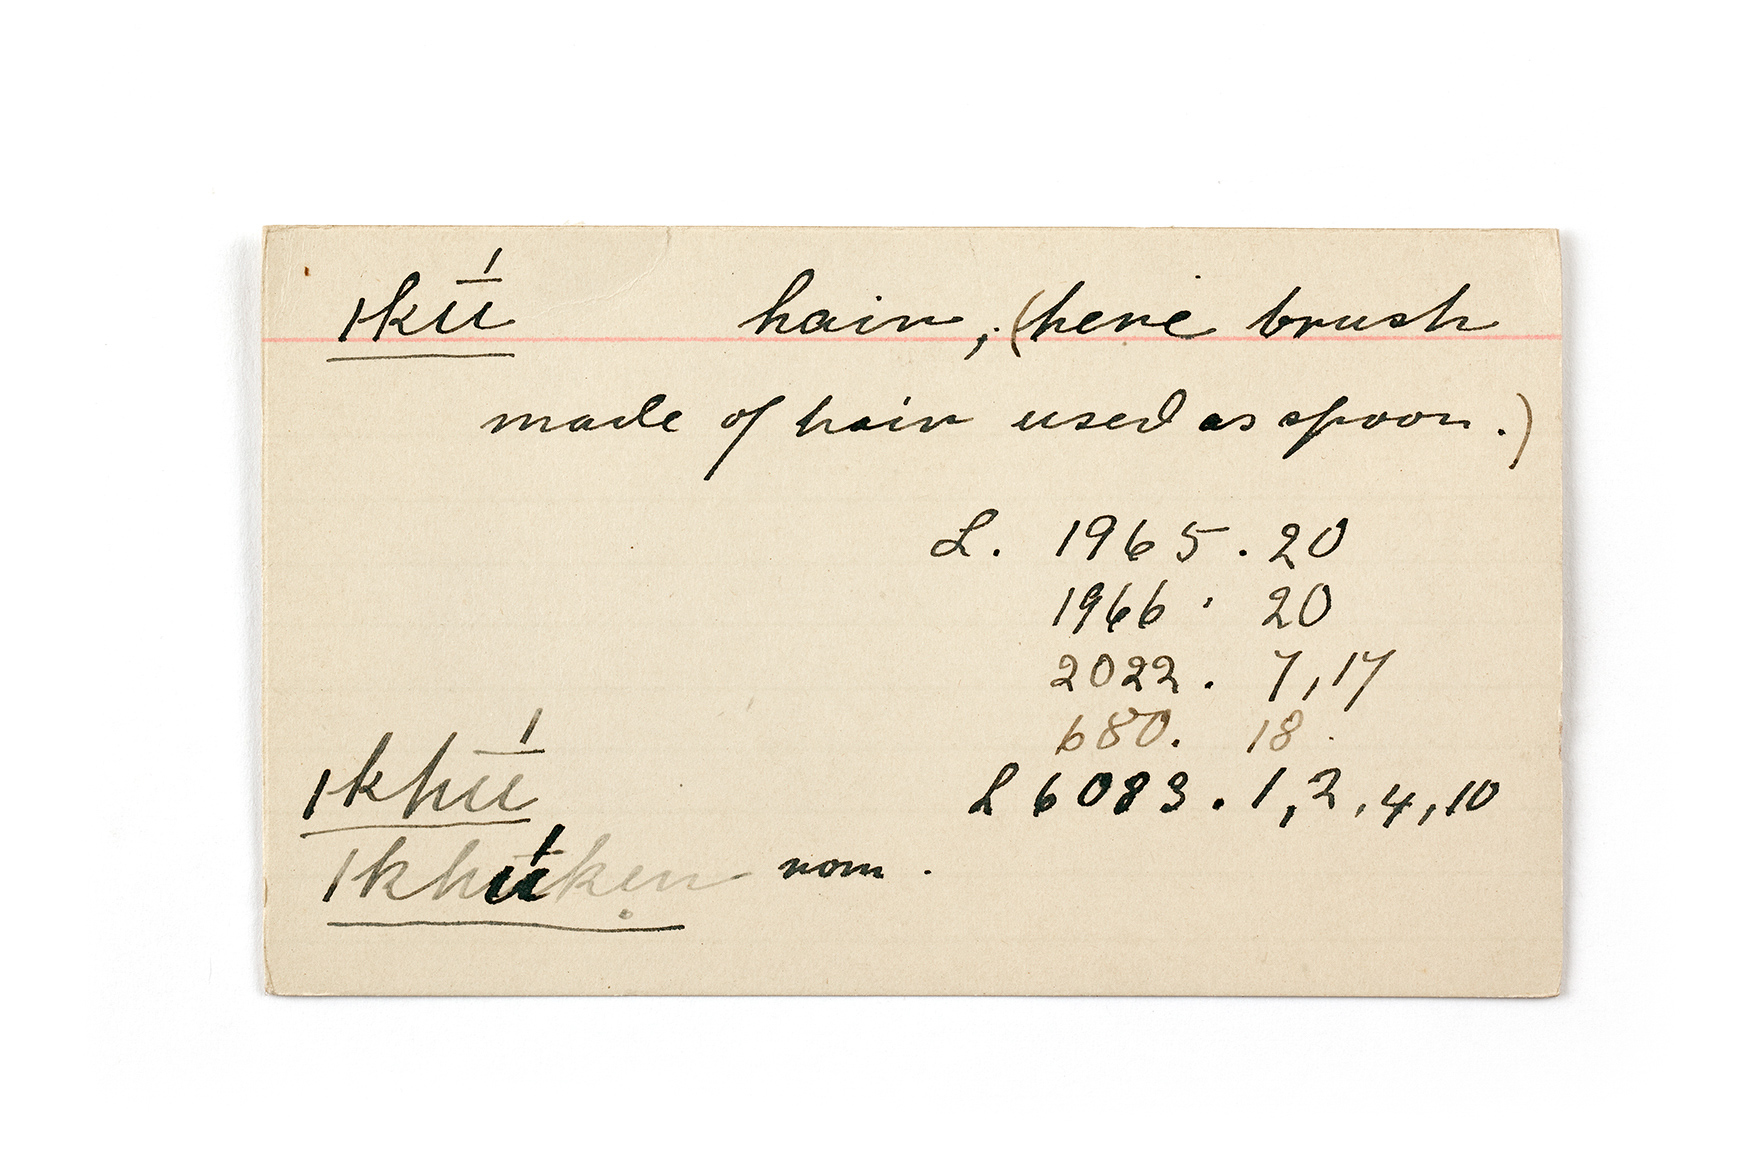 ǀkū́ hair, (here brush
made of hair used as spoon.)
L. 1965. 20
1966. 20
2022. 7, 17
680. 18.
ǀkhū́
L 6083. 1, 2, 4, 10
ǀkhū́kẹn nom.